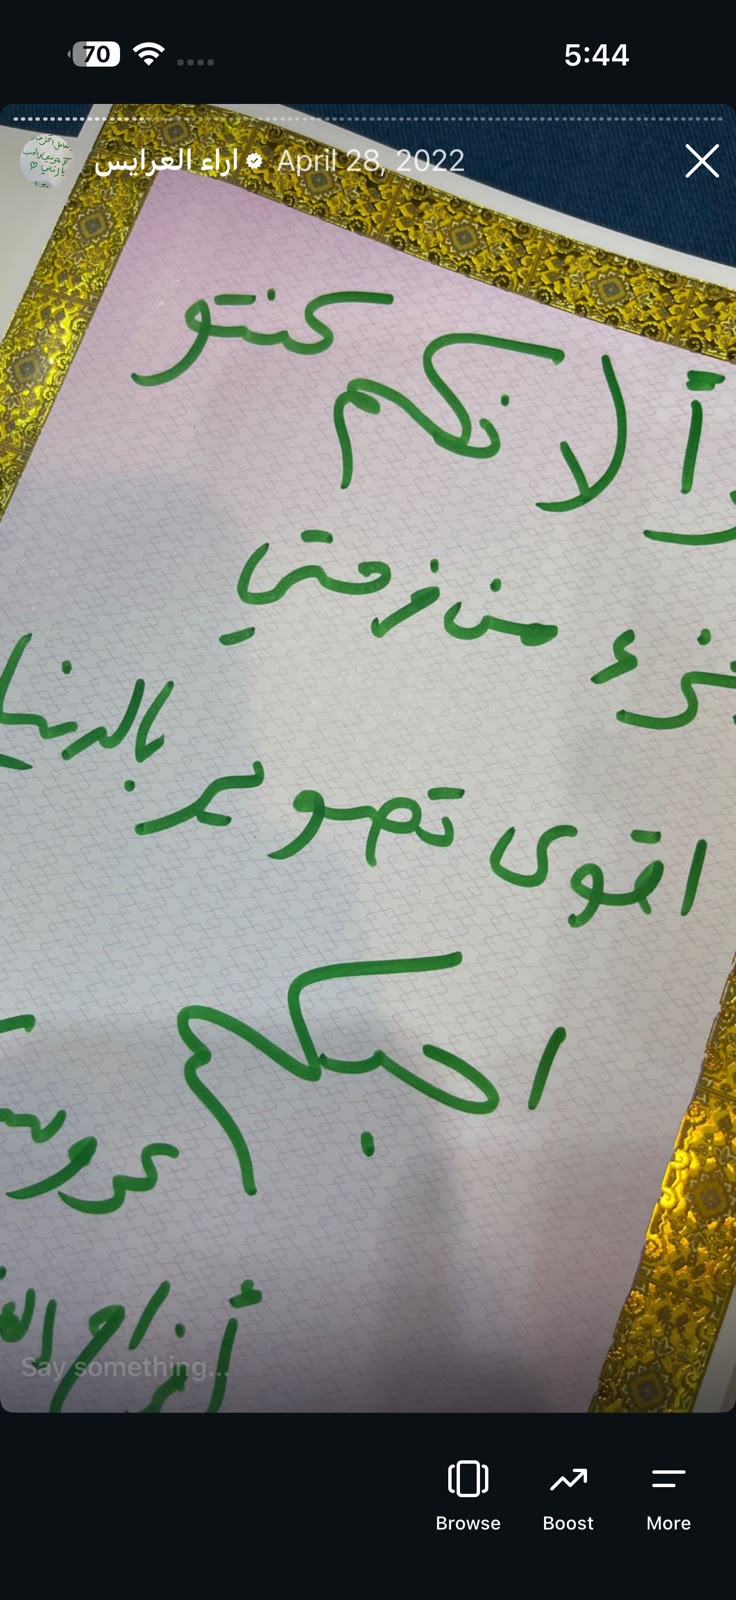 5:44
70
اراء العرايس April 28, 2022
ألانكم كنتو
جزء من فرحتي
اقوى تصوير بالدنيا
احبكم
عروسـ
أفراح
Say something...
Browse Boost More